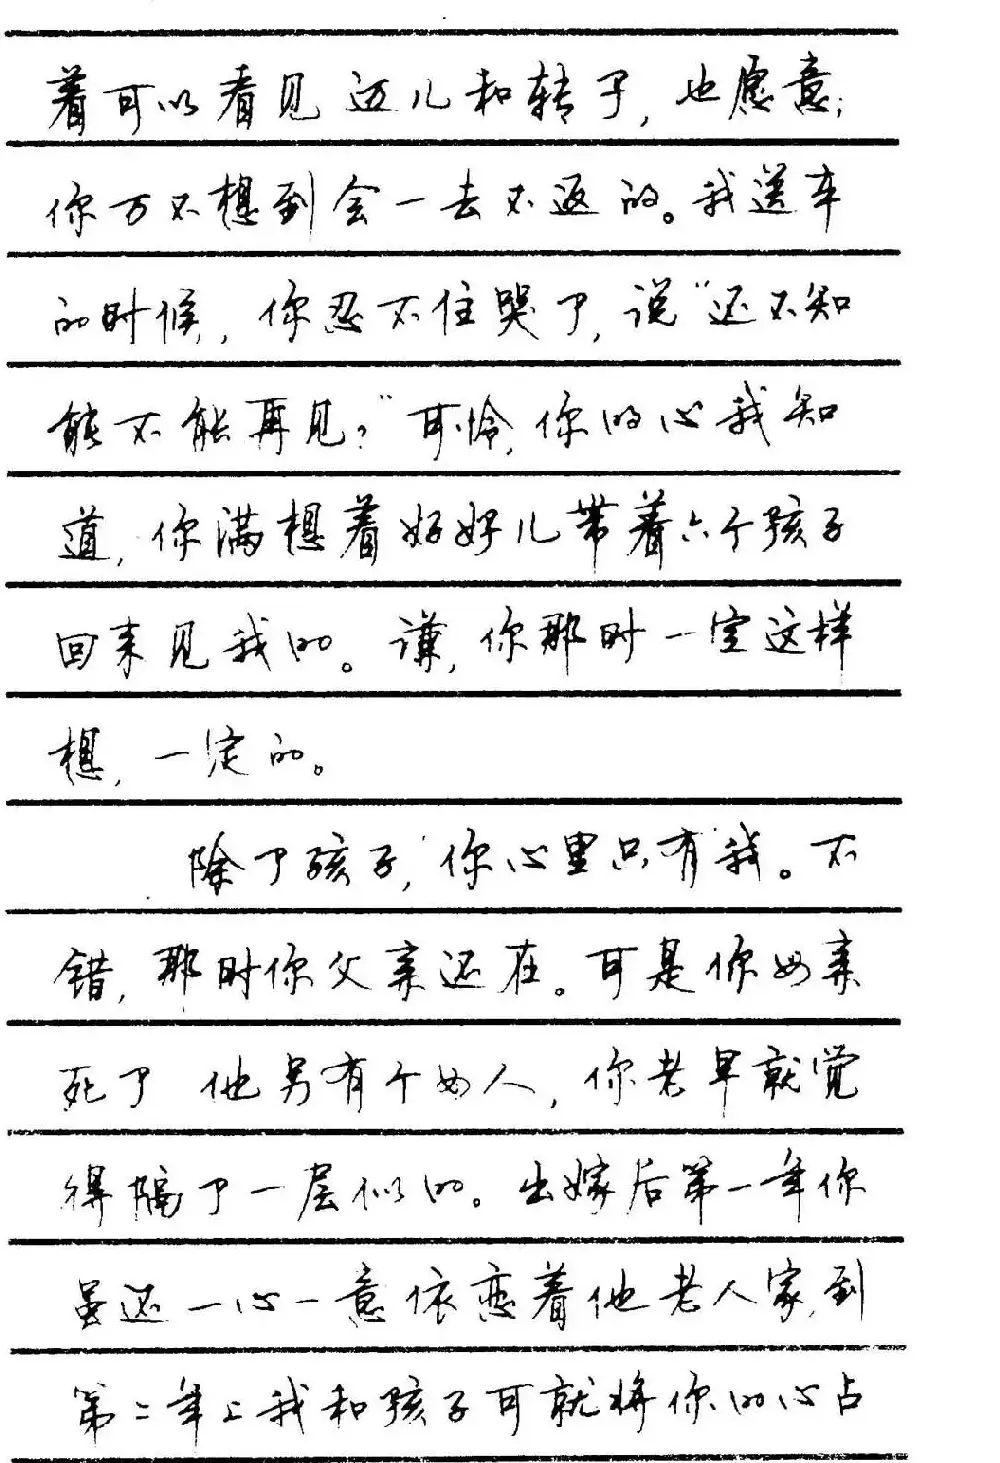 着可以看见迈儿和转子，也愿意；
你万不想到会一去不返的。我送车
的时候，你忍不住哭了，说“还不知
能不能再见？”可怜，你的心我知
道，你满想着好好儿带着六个孩子
回来见我的。谦，你那时一定这样
想，一定的。
除了孩子，你心里只有我。不
错，那时你父亲还在。可是你母亲
死了 他另有个女人，你老早就觉
得隔了一层似的。出嫁后第一年你
虽还一心一意依恋着他老人家，到
第二年上我和孩子可就将你的心占